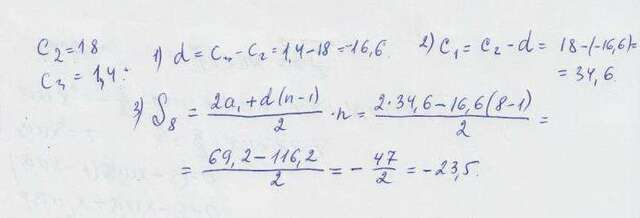 C₂ = 18 1) d = Cч – C₂ = 1,4 – 18 = –16,6 2) C₁ = C₂ – d = 18 – (–16,6) =
Cч = 1,4 : = 34,6
3) S₈ = (2a₁ + d(n – 1))/2 · n = (2·34,6 – 16,6(8 – 1))/2 =
= (69,2 – 116,2)/2 = – 47/2 = –23,5.